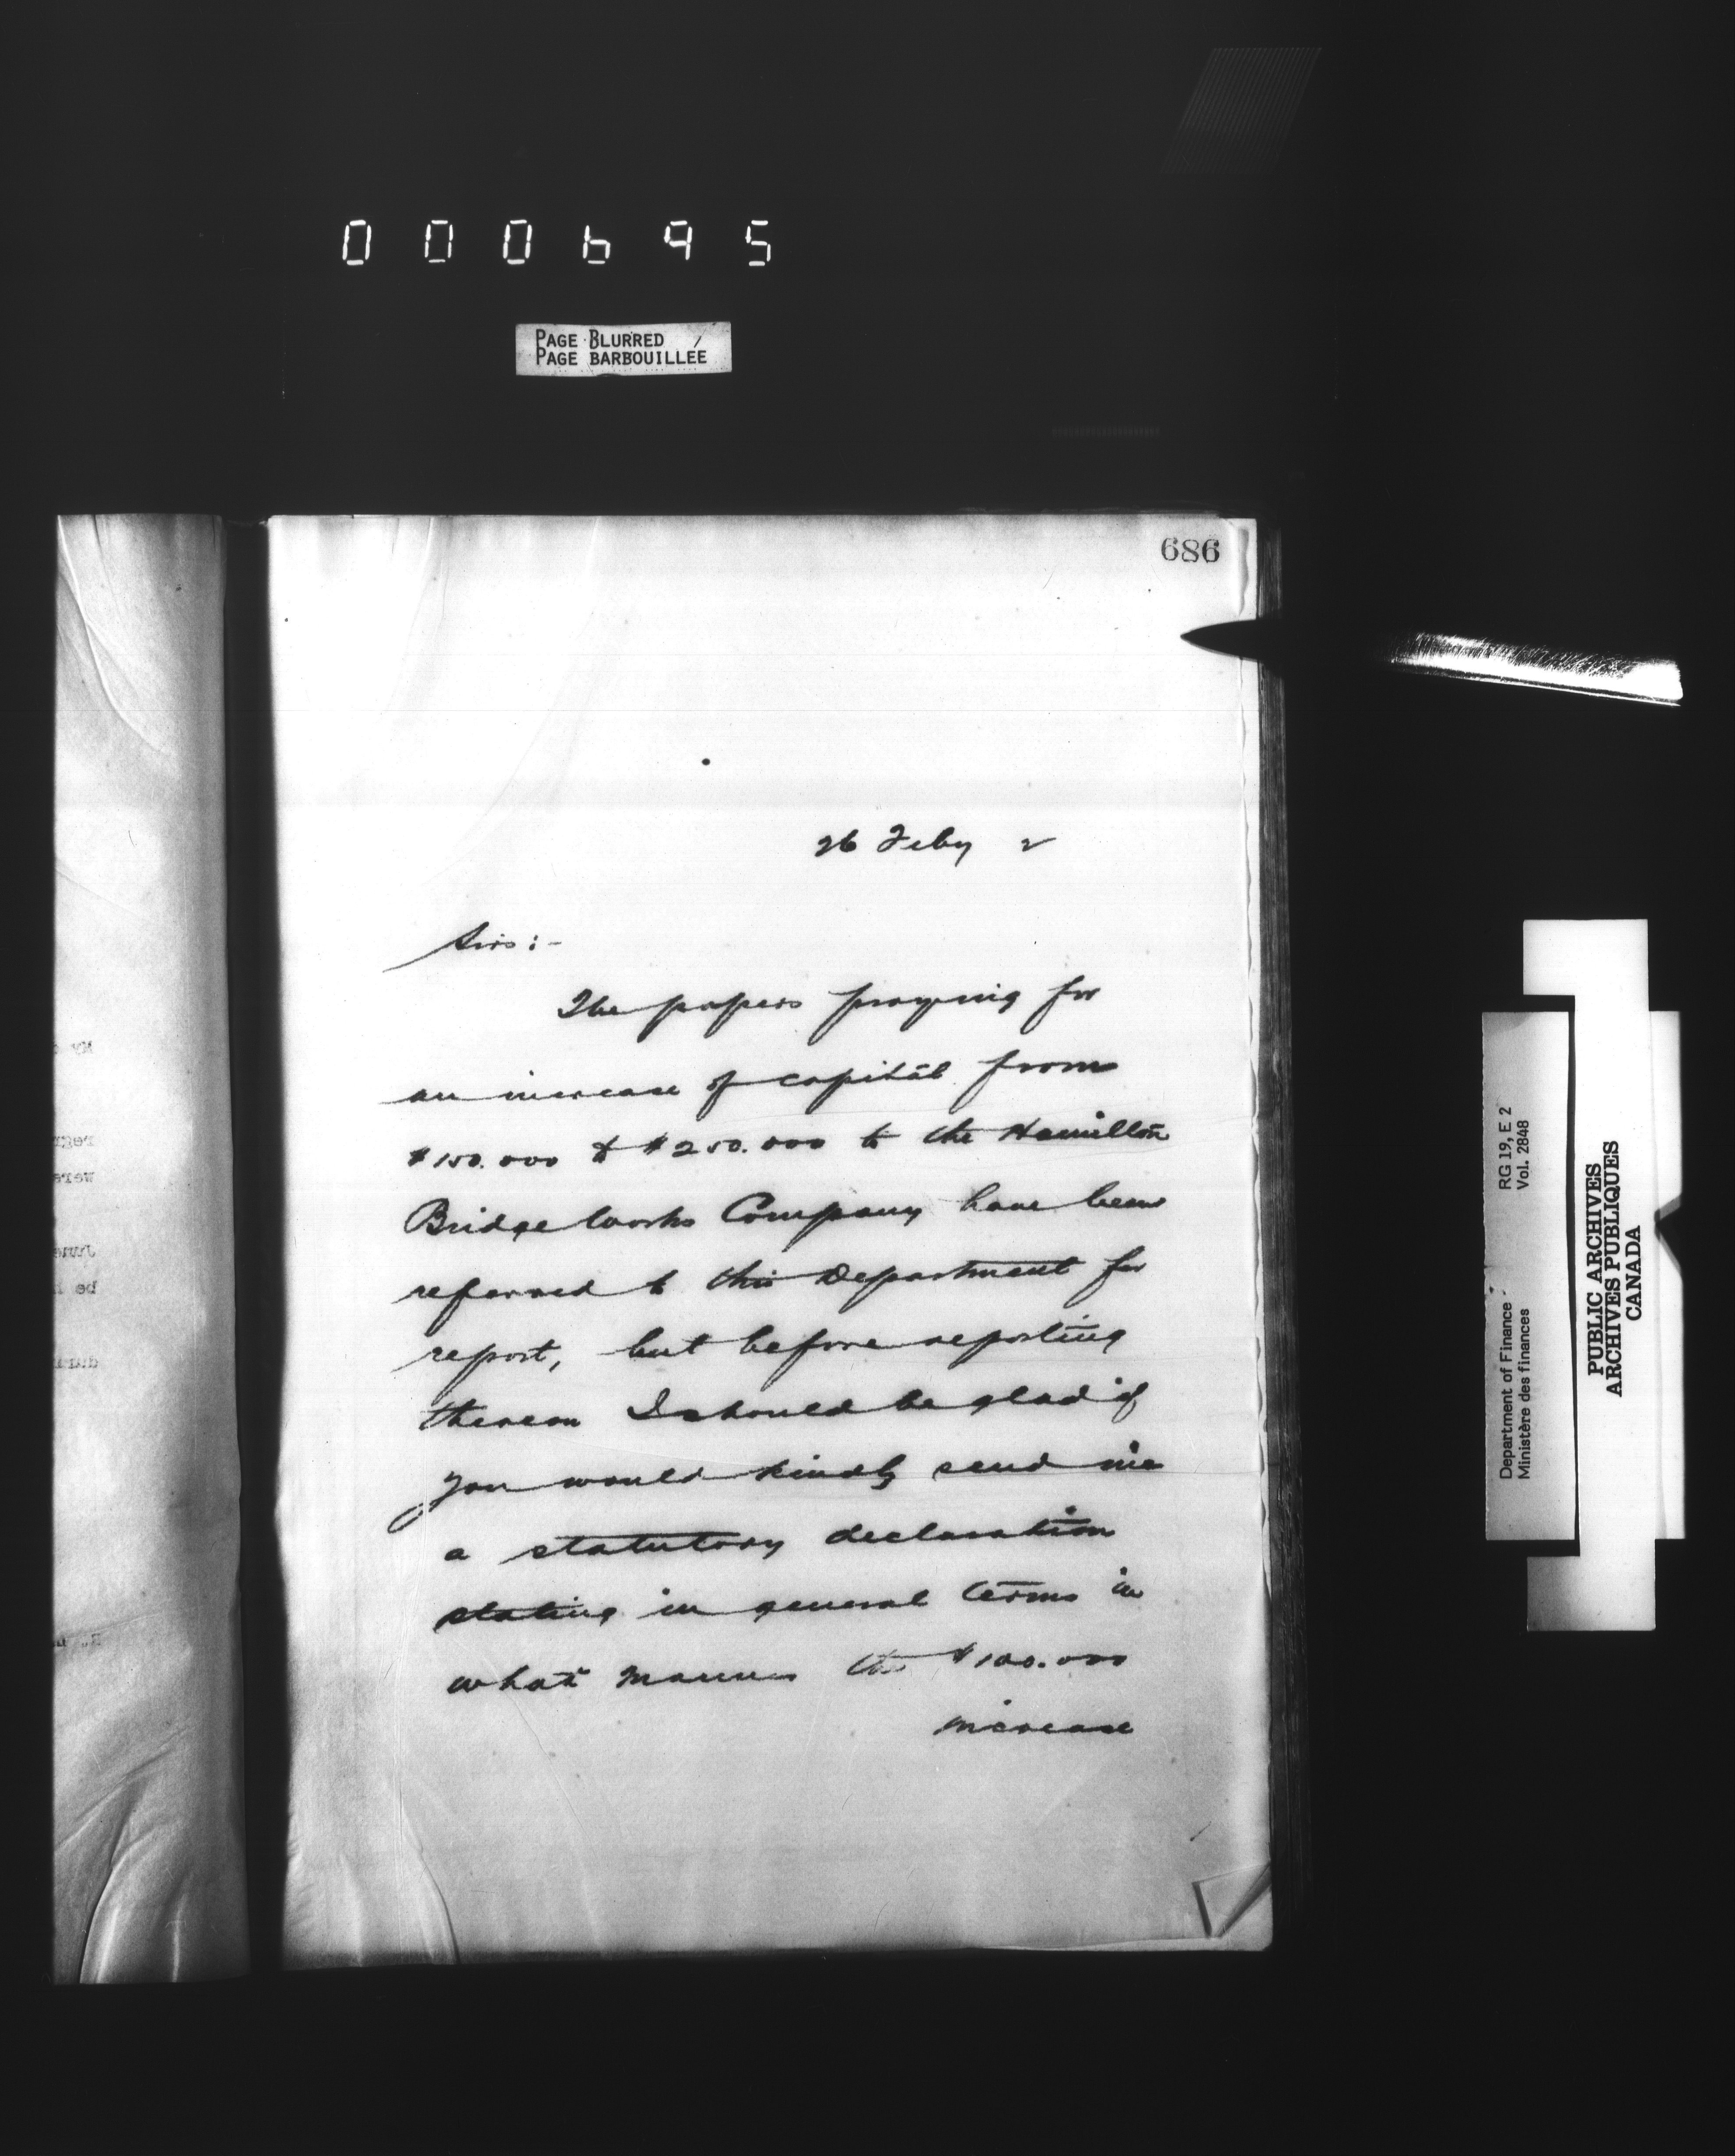 000695
PAGE BLURRED
PAGE BARBOUILLÉE
686
26 Feby 2
Sirs :-
The papers praying for
an increase of capital from
$150.000 to $250.000 to the Hamilton
Bridge Works Company have been
referred to this Department for
report, but before reporting
thereon I should be glad if
you would kindly send me
a statutory declaration
stating in general terms in
what manner the $100.000
increase
RG 19, E 2
Vol. 2848
Department of Finance
Ministère des finances
PUBLIC ARCHIVES
ARCHIVES PUBLIQUES
CANADA